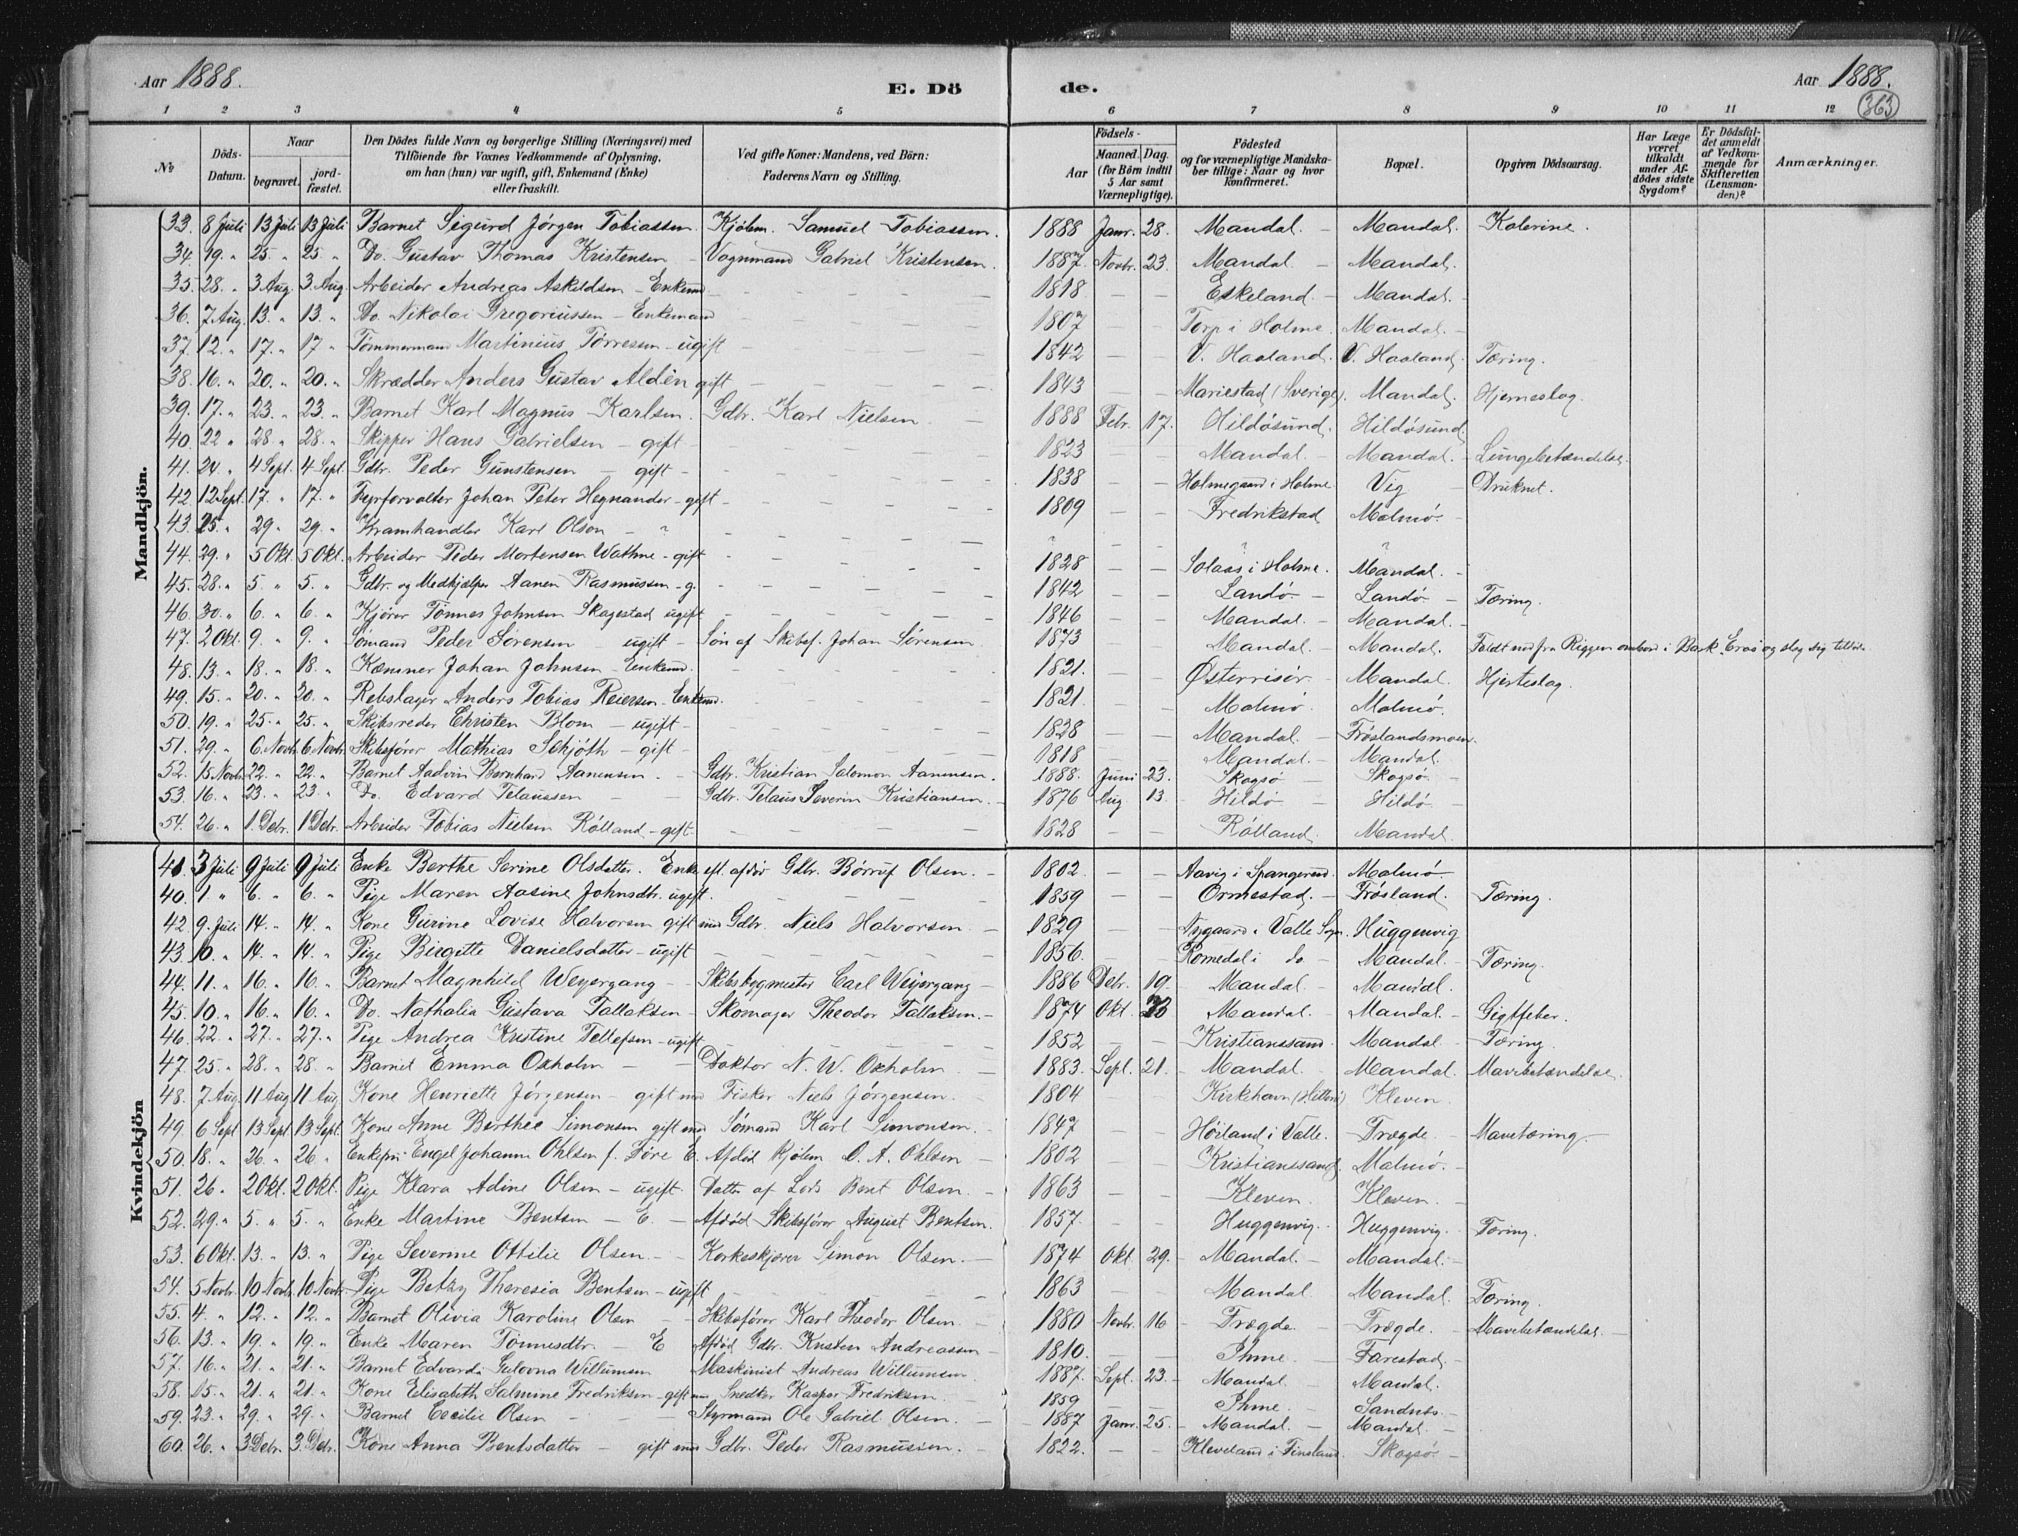 Aar 1888.
E. Dö
de.
Aar 1888.
363
1 2 3 4 5 6 7 8 9 10 11 12
No
Döds-Datum.
Naar
begravet.
jord-fæstet.
Den Dödes fulde Navn og borgerlige Stilling (Næringsvei) med
Tilföiende for Voxnes Vedkommende af Oplysning,
om han (hun) var ugift, gift, Enkemand (Enke)
eller fraskilt.
Ved gifte Koner: Mandens, ved Börn:
Faderens Navn og Stilling.
Födsels-
Aar
Maaned. Dag.
(for Börn indtil
5 Aar samt
Værnepligtige).
Födested
og for værnepligtige Mandska-
ber tillige: Naar og hvor
konfirmeret.
Bopæl.
Opgiven Dödsaarsag.
Har Læge
været
tilkaldt
under Af-
dödes sidste
Sygdom?
Er Dödsfal-
det anmeldt
af Vedkom-
mende for
Skifteretten
(Lensman-
den)?
Anmærkninger.
Mandkjön.
33. 8 Juli 13 Juli 13 Juli Barnet Sigurd Jörgen Tobiassen Kjöbm. Samuel Tobiassen. 1888 Janr. 28. Mandal. Mandal. Kolerine.
34. 19. " 25. " 25. " Do. Gustav Thomas Kristensen Vognmand Gabriel Kristensen. 1887. Novbr. 23. Mandal. Mandal.
35. 28. " 3 Aug 3 Aug. Arbeider Andreas Askildsen - Enkemd. 1818 Eskeland. Mandal.
36. 7 Aug. 13. " 13. " Do. Nikolai Gregoriussen - Enkemand 1807 Torp i Holme. Mandal.
37. 12. " 17. " 17 " Tömmermand Martinius Törresen - ugift 1842 V. Haaland. V. Haaland. Tæring.
38. 16. " 20. " 20. " Skrædder Anders Gustav Aldén gift 1843 Mariestad (Sverige). Mandal. Hjerneslag.
39. 17. " 23. " 23. " Barnet Karl Magnus Karlsen. Gdbr. Karl Nielsen 1888 Febr. 17. Hildösund. Hildösund.
40. 22 " 28 " 28. " Skipper Hans Gabrielsen - gift 1823 Mandal. Mandal. Lungebetændelse.
41. 24. " 4 Sept. 4 Sept. Gdbr. Peder Gunstensen - gift 1838 Holmegaard i Holme Vig Druknet.
42 12 Sept. 17. " 17. " Fyrforvalter Johan Peter Hegnander - gift 1809 Fredrikstad Malmö.
43. 25 " 29 " 29. " Kramhandler Karl Olson - " " " "
44. 29. " 5 Okt. 5 Okt. Arbeider Peder Mortensen Wathne - gift 1828 Solaas i Holme. Mandal.
45. 28. " 5. " 5. " Gdbr. og Medhjælper Aanen Rasmussen - g. 1842 Landö. Landö Tæring.
46. 30. " 6. " 6. " Kjörer Tönnes Johnsen Skagestad ugift 1846 Mandal. Mandal.
47. 2 Okt. 9. " 9. " Sömand Peder Sörensen ugift Sön af Skibsf. Johan Sörensen 1873 Mandal. Mandal. Faldt ned fra Riggen ombord i Bark Eros og slog sig tildöde
48. 13. " 18. " 18. " Kæmner Johan Johnsen - Enkemd. 1821. Österrisör. Mandal. Hjerteslag.
49. 15. " 20. " 20. " Rebslager Anders Tobias Reiersen - Enkemd. 1821. Malmö Malmö.
50. 19. " 25. " 25. " Skibsreder Christen Blom - ugift 1828 Mandal. Fröslandsmoen.
51. 29. " 6 Novbr. 6 Novbr. Skibsförer Mathias Schjöth - gift 1818 Mandal. Mandal.
52. 15 Novbr. 22. " 22. " Barnet Aadvin Bernhard Aanensen Gdbr. Kristian Salomon Aanensen. 1888. Juni 23. Skogsö Skogsö.
53. 16. " 23. " 23. " Do. Edvard Telaussen Gdbr. Telaus Severin Kristiansen. 1876 Aug 13. Hildö Hildö
54. 26. " 1 Debr. 1 Debr. Arbeider Tobias Nielsen Rölland - gift 1828 Rölland. Mandal.
Kvindekjön
41. 3 Juli 9 Juli 9 Juli Enke Berthe Serine Olsdatter. Enke eft. afdöd Gdbr. Börruf Olsen. 1802 Aavig i Spangereid. Malmö.
40. 1 " 6. " 6. " Pige Maren Aasine Johnsdtr. ugift. 1859 Ormestad. Frösland. Tæring.
42. 9 Juli 14. " 14. " Kone Gurine Lovise Halvorsen gift med Gdbr. Niels Halvorsen. 1829 Nygaard i Valle Sogn. Huggenvig
43. 10. " 14. " 14. " Pige Birgitte Danielsdatter - ugift 1856. Romedal i do Mandal. Tæring.
44. 11. " 16. " 16. " Barnet Magnhild Weyergang Skibsbygmester Carl Weyergang 1886 Debr. 19. Mandal Mandal.
45. 10. " 16. " 16. " Do. Nathalia Gustava Tallaksen Skomager Theodor Tallaksen. 1874 Okt. Mandal. Mandal. Gigtfeber.
46. 22. " 27. " 27. " Pige Andrea Kristine Tellefsen - ugift 1852 Kristianssand. Mandal. Tæring.
47. 25. " 28. " 28. " Barnet Emma Oxholm Doktor N. W. Oxholm 1883 Sept. 21. Mandal. Mandal. Mavebetændelse.
48. 7 Aug. 11 Aug. 11 Aug. Kone Henriette Jörgensen - gift med Fisker Niels Jörgensen. 1804 Kirkehavn (Hitterö) Kleven.
49. 6 Sept. 13 Sept. 13 Sept. Kone Anne Berthee Simonsen gift med Sömand Karl Simonsen. 1847 Höiland i Valle. Trægde. Mavetæring.
50. 18. " 26. " 26. " Enkefru Engel Johanne Ohlsen f. Före E. Afdöd Kjöbm. O. A. Ohlsen 1802 Kristianssand. Malmö.
51. 26. " 2 Okt. 2 Okt. Pige Klara Adine Olsen - ugift. Datter af Lods Bent Olsen. 1863 Kleven. Kleven.
52. 29. " 5. " 5. " Enke Martine Bentsen - E - Afdöd Skibsförer August Bentsen. 1857. Huggenvig. Huggenvig. Tæring.
53. 6 Okt. 13. " 13. " Pige Severine Ottilie Olsen. Korkeskjærer Simon Olsen. 1874 Okt. 29. Mandal. Mandal.
54. 5 Novbr. 10 Novbr. 10 Novbr. Pige Betzy Theresia Bentsen - ugift 1863 Mandal. Mandal. Tæring.
55. 4. " 12. " 12. " Barnet Olivia Karoline Olsen Skibsförer Karl Theodor Olsen. 1880 Novbr. 16 Trægde. Trægde. Mavebetændelse.
56. 13. " 19. " 19. " Enke Maren Tönnesdtr. E Afdöd Gdbr. Knsten Andreassen 1810. Ihme. Farestad.
57. 16. " 21. " 21. " Barnet Edvarda Gulovna Willumsen Maskinist Andreas Willumsen. 1887. Sept. 23. Mandal. Mandal.
58. 15. " 21. " 21. " Kone Elisabeth Salmine Fredriksen - gift med Snedker Kasper Fredriksen. 1859 Ihme. Sandnes.
59. 23. " 29. " 29. " Barnet Cecilie Olsen Styrmand Ole Gabriel Olsen. 1887 Janr. 25. Mandal. Mandal.
60. 26. " 3 Debr. 3 Debr. Kone Anna Bentsdatter - gift med Gdbr. Peder Rasmussen. 1822. Kleveland i Finsland. Skogsö.